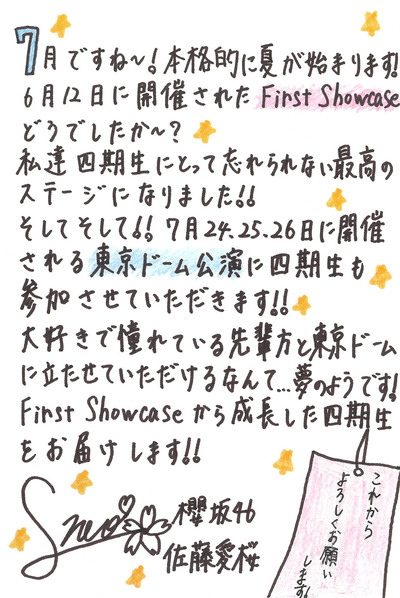 7月ですね〜！本格的に夏が始まります！
6月12日に開催された First Showcase
どうでしたか〜？
私達四期生にとって忘れられない最高の
ステージになりました！！
そしてそして！！7月24.25.26日に開催
される東京ドーム公演に四期生も
参加させていただきます！！
大好きで憧れている先輩方と東京ドーム
に立たせていただけるなんて…夢のようです！
First Showcaseから成長した四期生
をお届けします！！
これから
よろしくお願い
します！
櫻坂46
佐藤愛桜